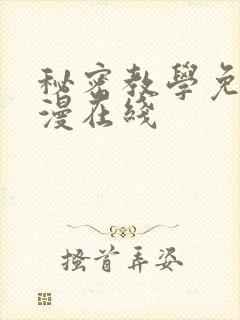 秘密教學免
漫在綫
搔首弄姿